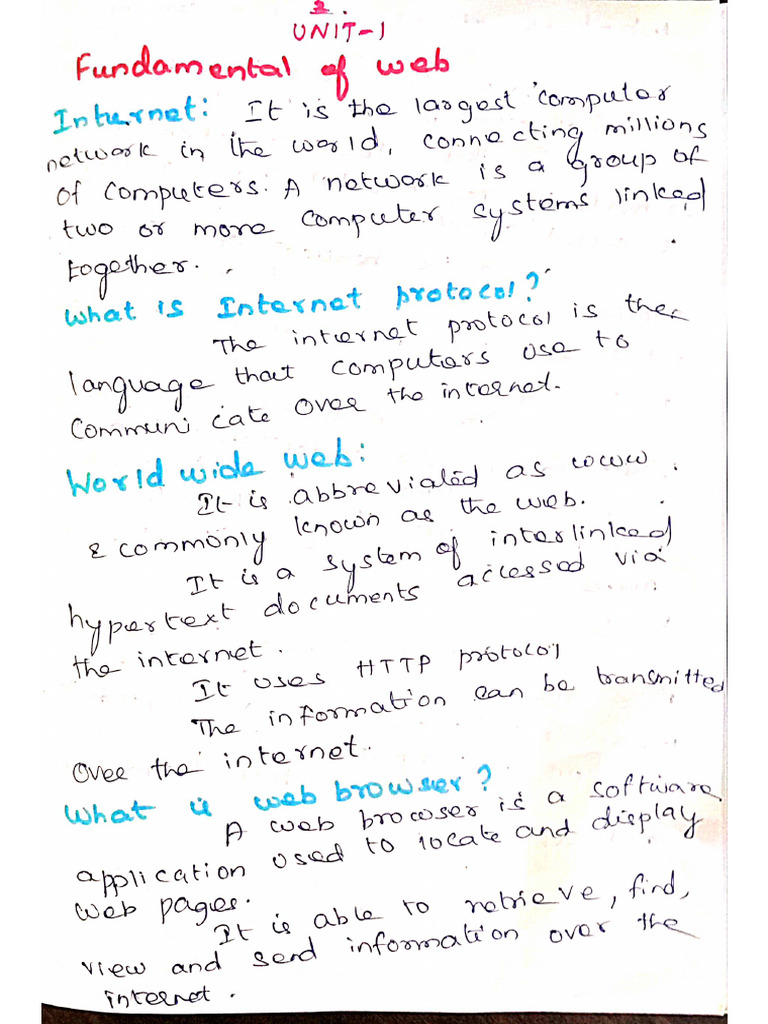 2.
UNIT-1
Fundamental of web
Internet: It is the largest computer
network in the world, connecting millions
of computers. A network is a group of
two or more computer systems linked
together.
What is Internet protocol?
The internet protocol is the
language that computers use to
communi cate over the internet.
World wide web:
It is abbrevialed as www.
& commonly known as the web.
It is a system of interlinked
hypertext documents accessed via
the internet.
It uses HTTP protocol
The information can be transmitted
over the internet.
What is web browser?
A web browser is a software
application used to locate and display
web pages.
It is able to retrieve, find,
view and send information over the
internet.